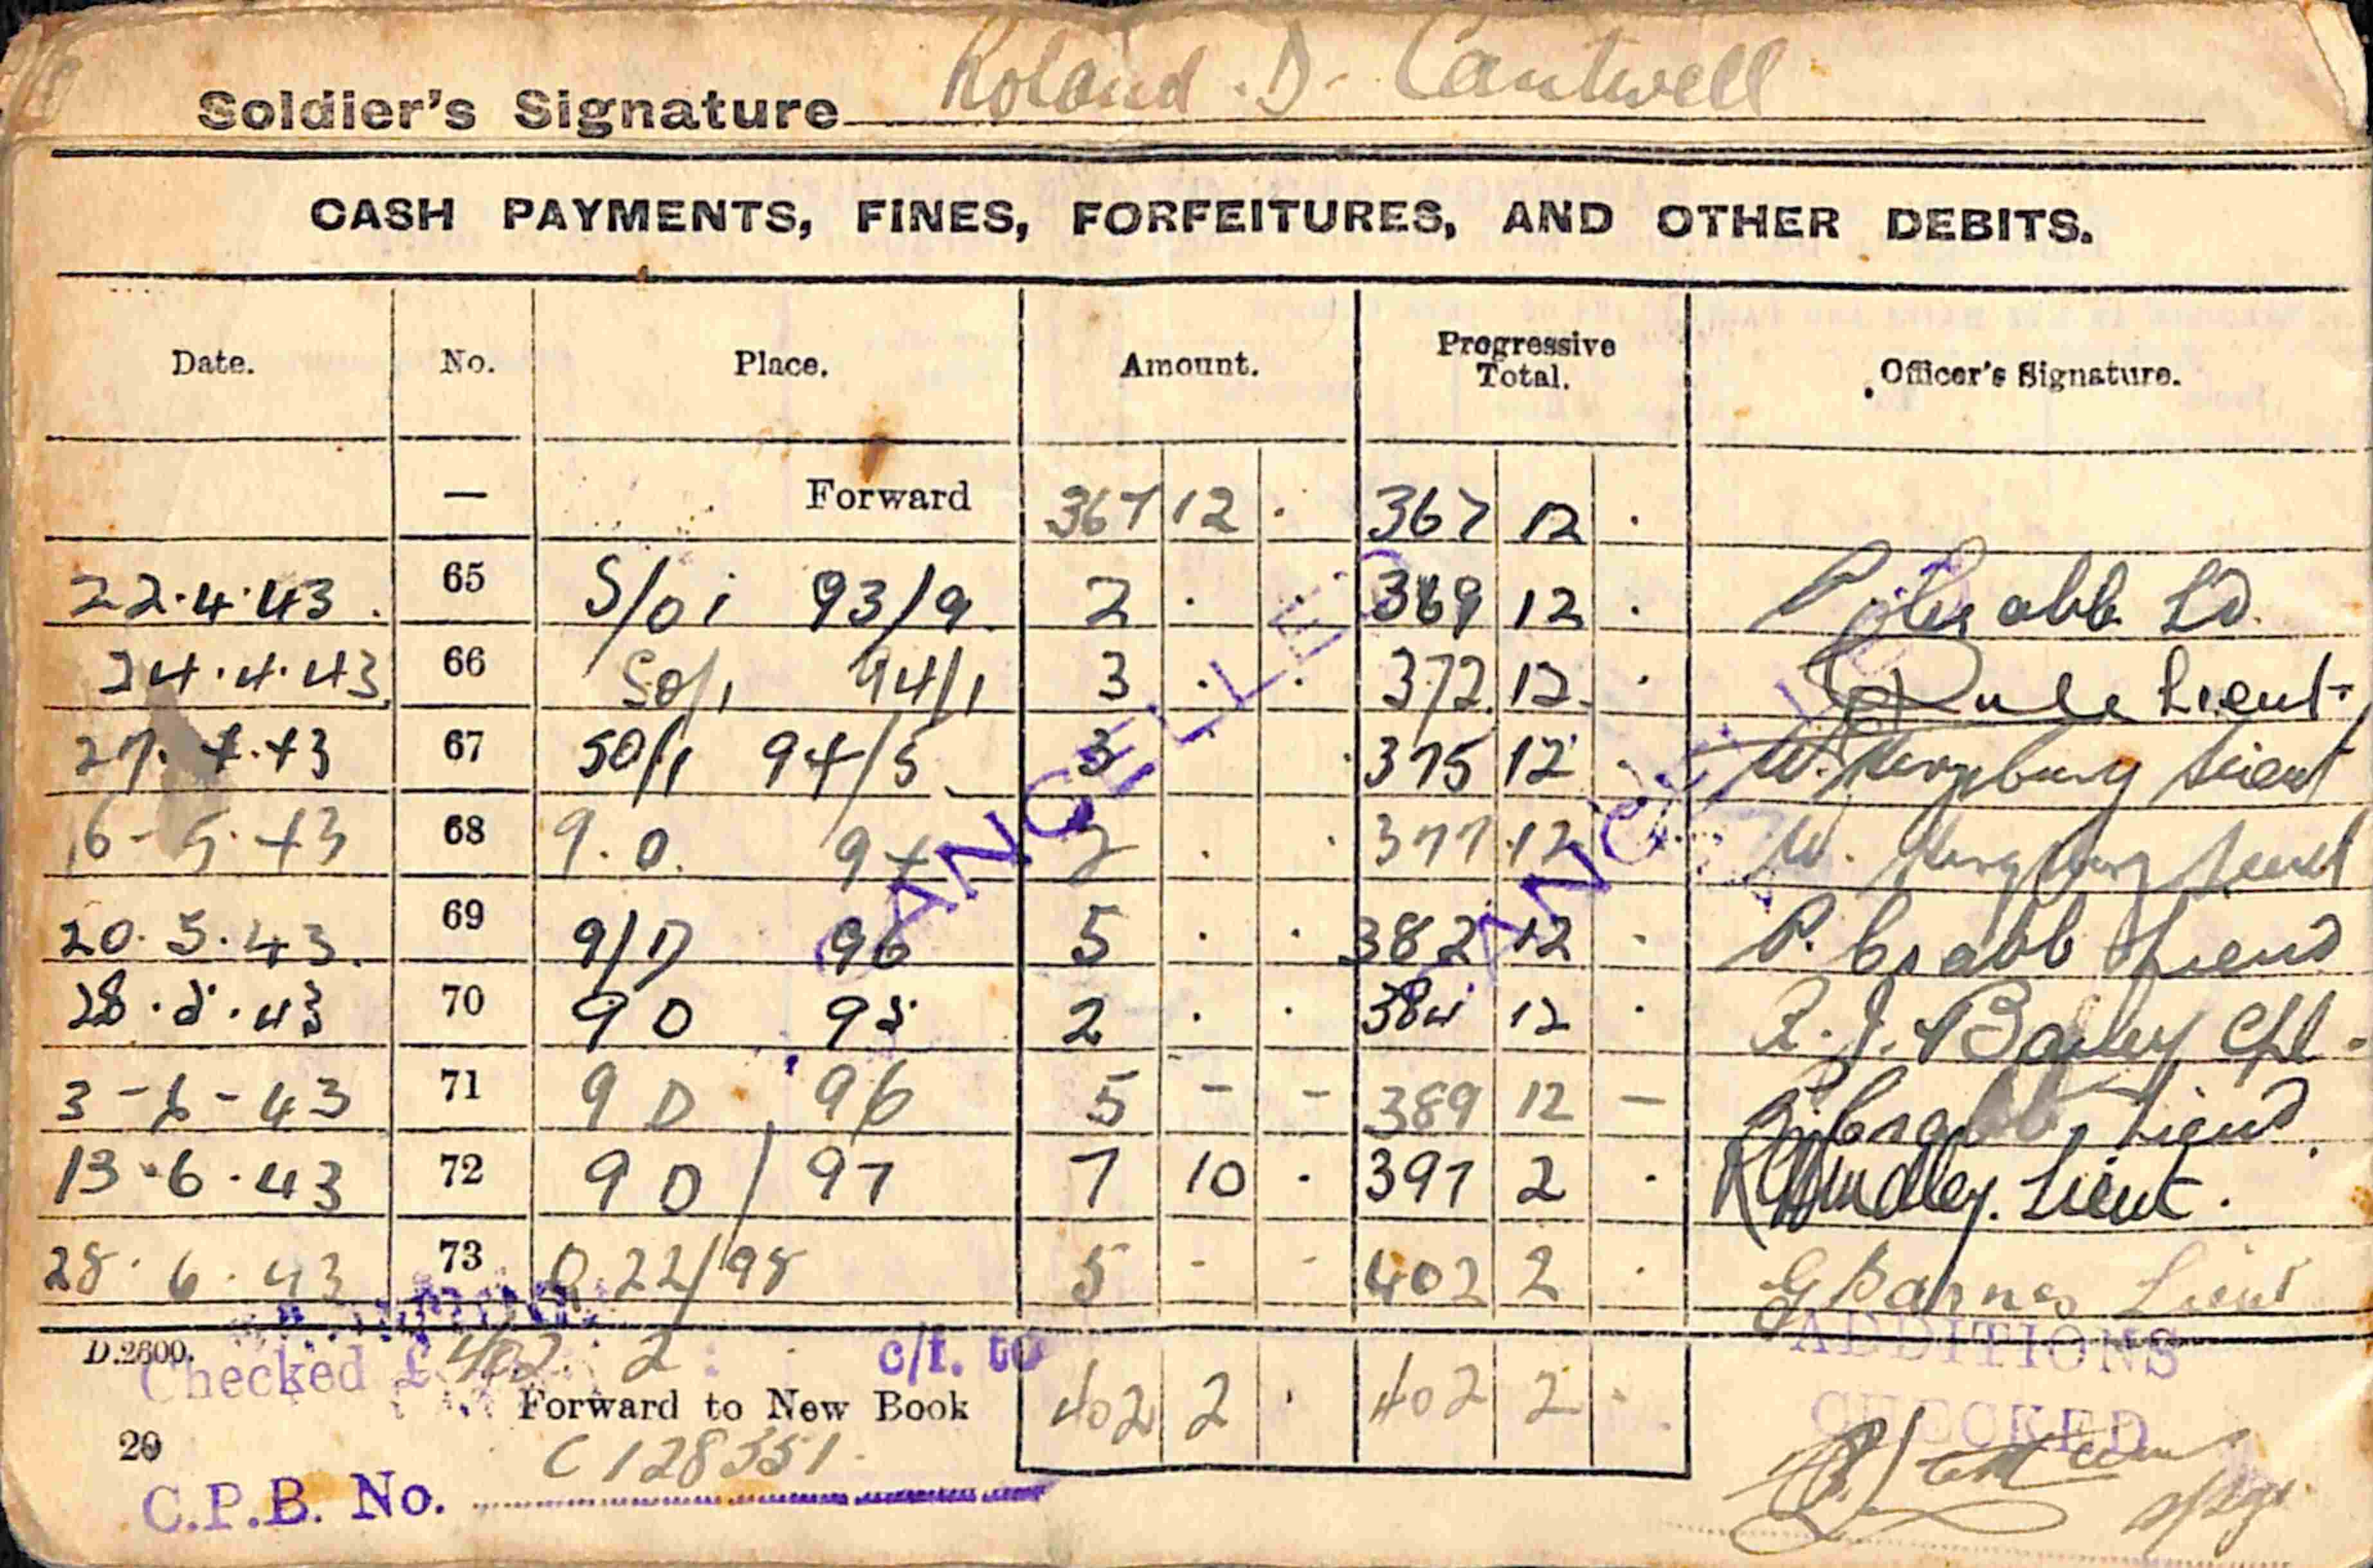 Soldier's Signature Roland . D. Cantwell
CASH PAYMENTS, FINES, FORFEITURES, AND OTHER DEBITS.
Date. No. Place. Amount. Progressive Total. Officer's Signature.
— Forward 367 12 . 367 12 .
22.4.43. 65 S/01 93/9. 2 . . 369 12 . Crabb Lt.
24.4.43. 66 50/1 94/1 3 . . 372 12 . Lieut.
27.4.43 67 50/1 94/5 3 . . 375 12 . W. Lieut
16-5.43 68 9.0. 94 2 . . 377 12 W. Lieut
20.5.43. 69 9/D 96 5 . . 382 12 . P. Crabb Lieut
28.5.43 70 9 D 95 2 . . 384 12 . R.J. Bailey Cpt.
3-6-43 71 9 D 96 5 - - 389 12 - Crabb, Lieut.
13.6.43 72 9 D / 97 7 10 . 397 2 . Lieut.
28.6.43 73 D 22/98 5 - - 402 2 . G Barnes Lieut
CANCELLED
CANCELLED
D.2600.
Checked £ 402 : 2 : c/f. to
ADDITIONS
CHECKED
Forward to New Book 402 2 . 402 2 -
20
C.P.B. No. C128351.